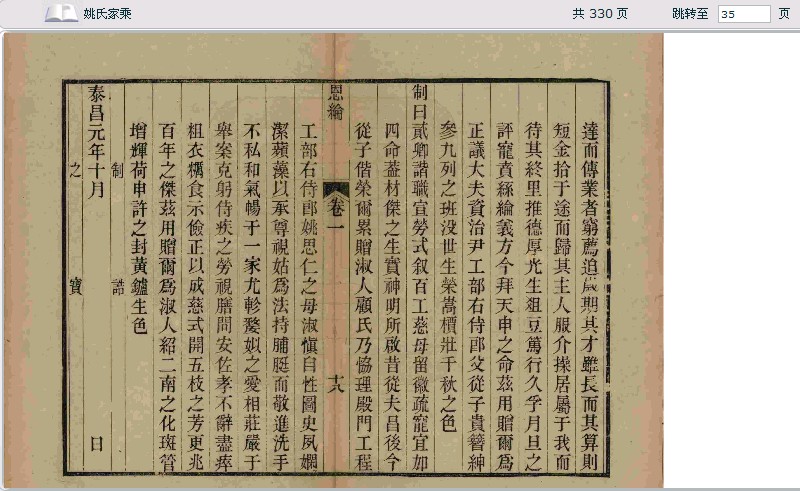 姚氏家乘
共 330 页
跳转至 35 页
達而傳業者窮薦追歲期其才雖長而其算則
短金拾于途而歸其主人服介操居屬于我而
待其終里推德厚光生俎豆篤行久孚月旦之
評寵賁絲綸義方今拜天申之命茲用贈爾爲
正議大夫資治尹工部右侍郎父從子貴簪紳
參九列之班没世生榮嵩檟壯千秋之色
制曰貳卿諧職宣勞式叙百工慈母留徽疏寵宜加
四命葢材傑之生實神明所啟昔從夫昌後今
從子偕榮爾累贈淑人顧氏乃協理殿門工程
恩綸
卷一
十六
工部右侍郎姚思仁之母淑愼自性圖史夙嫻
潔蘋藻以承尊視姑爲法持脯脡而敬進洗手
不私和氣暢于一家尤軫娣姒之愛相莊嚴于
舉案克躬侍疾之勞視膳問安佐孝不辭盡瘁
粗衣糲食示儉正以成慈式開五枝之芳更兆
百年之傑茲用贈爾爲淑人紹二南之化斑管
增輝荷申許之封黃鑪生色
制誥
泰昌元年十月 日
之寶